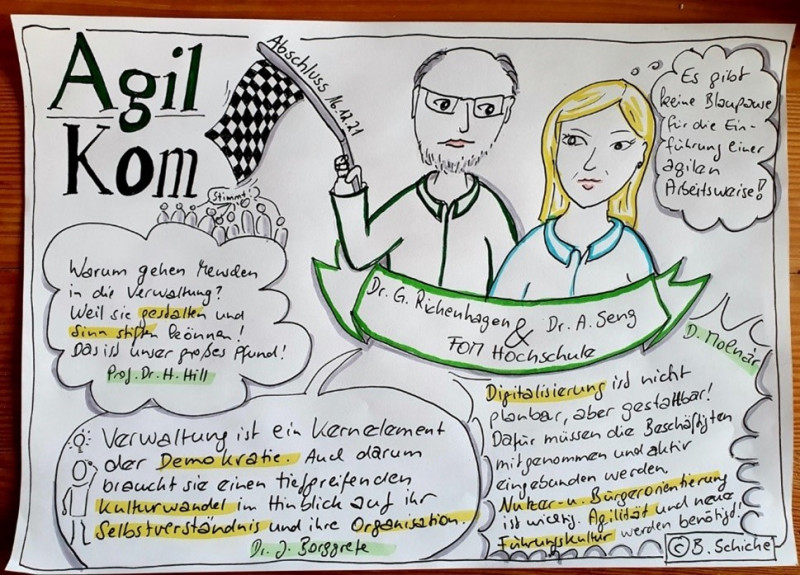 Agil
Kom
Abschluss 16.12.21
Stimmt!
Es gibt
keine Blaupause
für die Ein-
führung einer
agilen
Arbeitsweise!
Warum gehen Menschen
in die Verwaltung?
Weil sie gestalten und
Sinn stiften können!
Das ist unser großes Pfund!
Prof. Dr. H. Hill
Dr. G. Richenhagen
& Dr. A. Seng
FOM Hochschule
D. Molnár
Verwaltung ist ein Kernelement
der Demokratie. Auch darum
braucht sie einen tiefgreifenden
Kulturwandel im Hinblick auf ihr
Selbstverständnis und ihre Organisation.
Dr. J. Borggrefe
Digitalisierung ist nicht
planbar, aber gestaltbar!
Dafür müssen die Beschäftigten
mitgenommen und aktiv
eingebunden werden.
Nutzer- u. Bürgerorientierung
ist wichtig. Agilität und neue
Führungskultur werden benötigt!
© B. Schiche